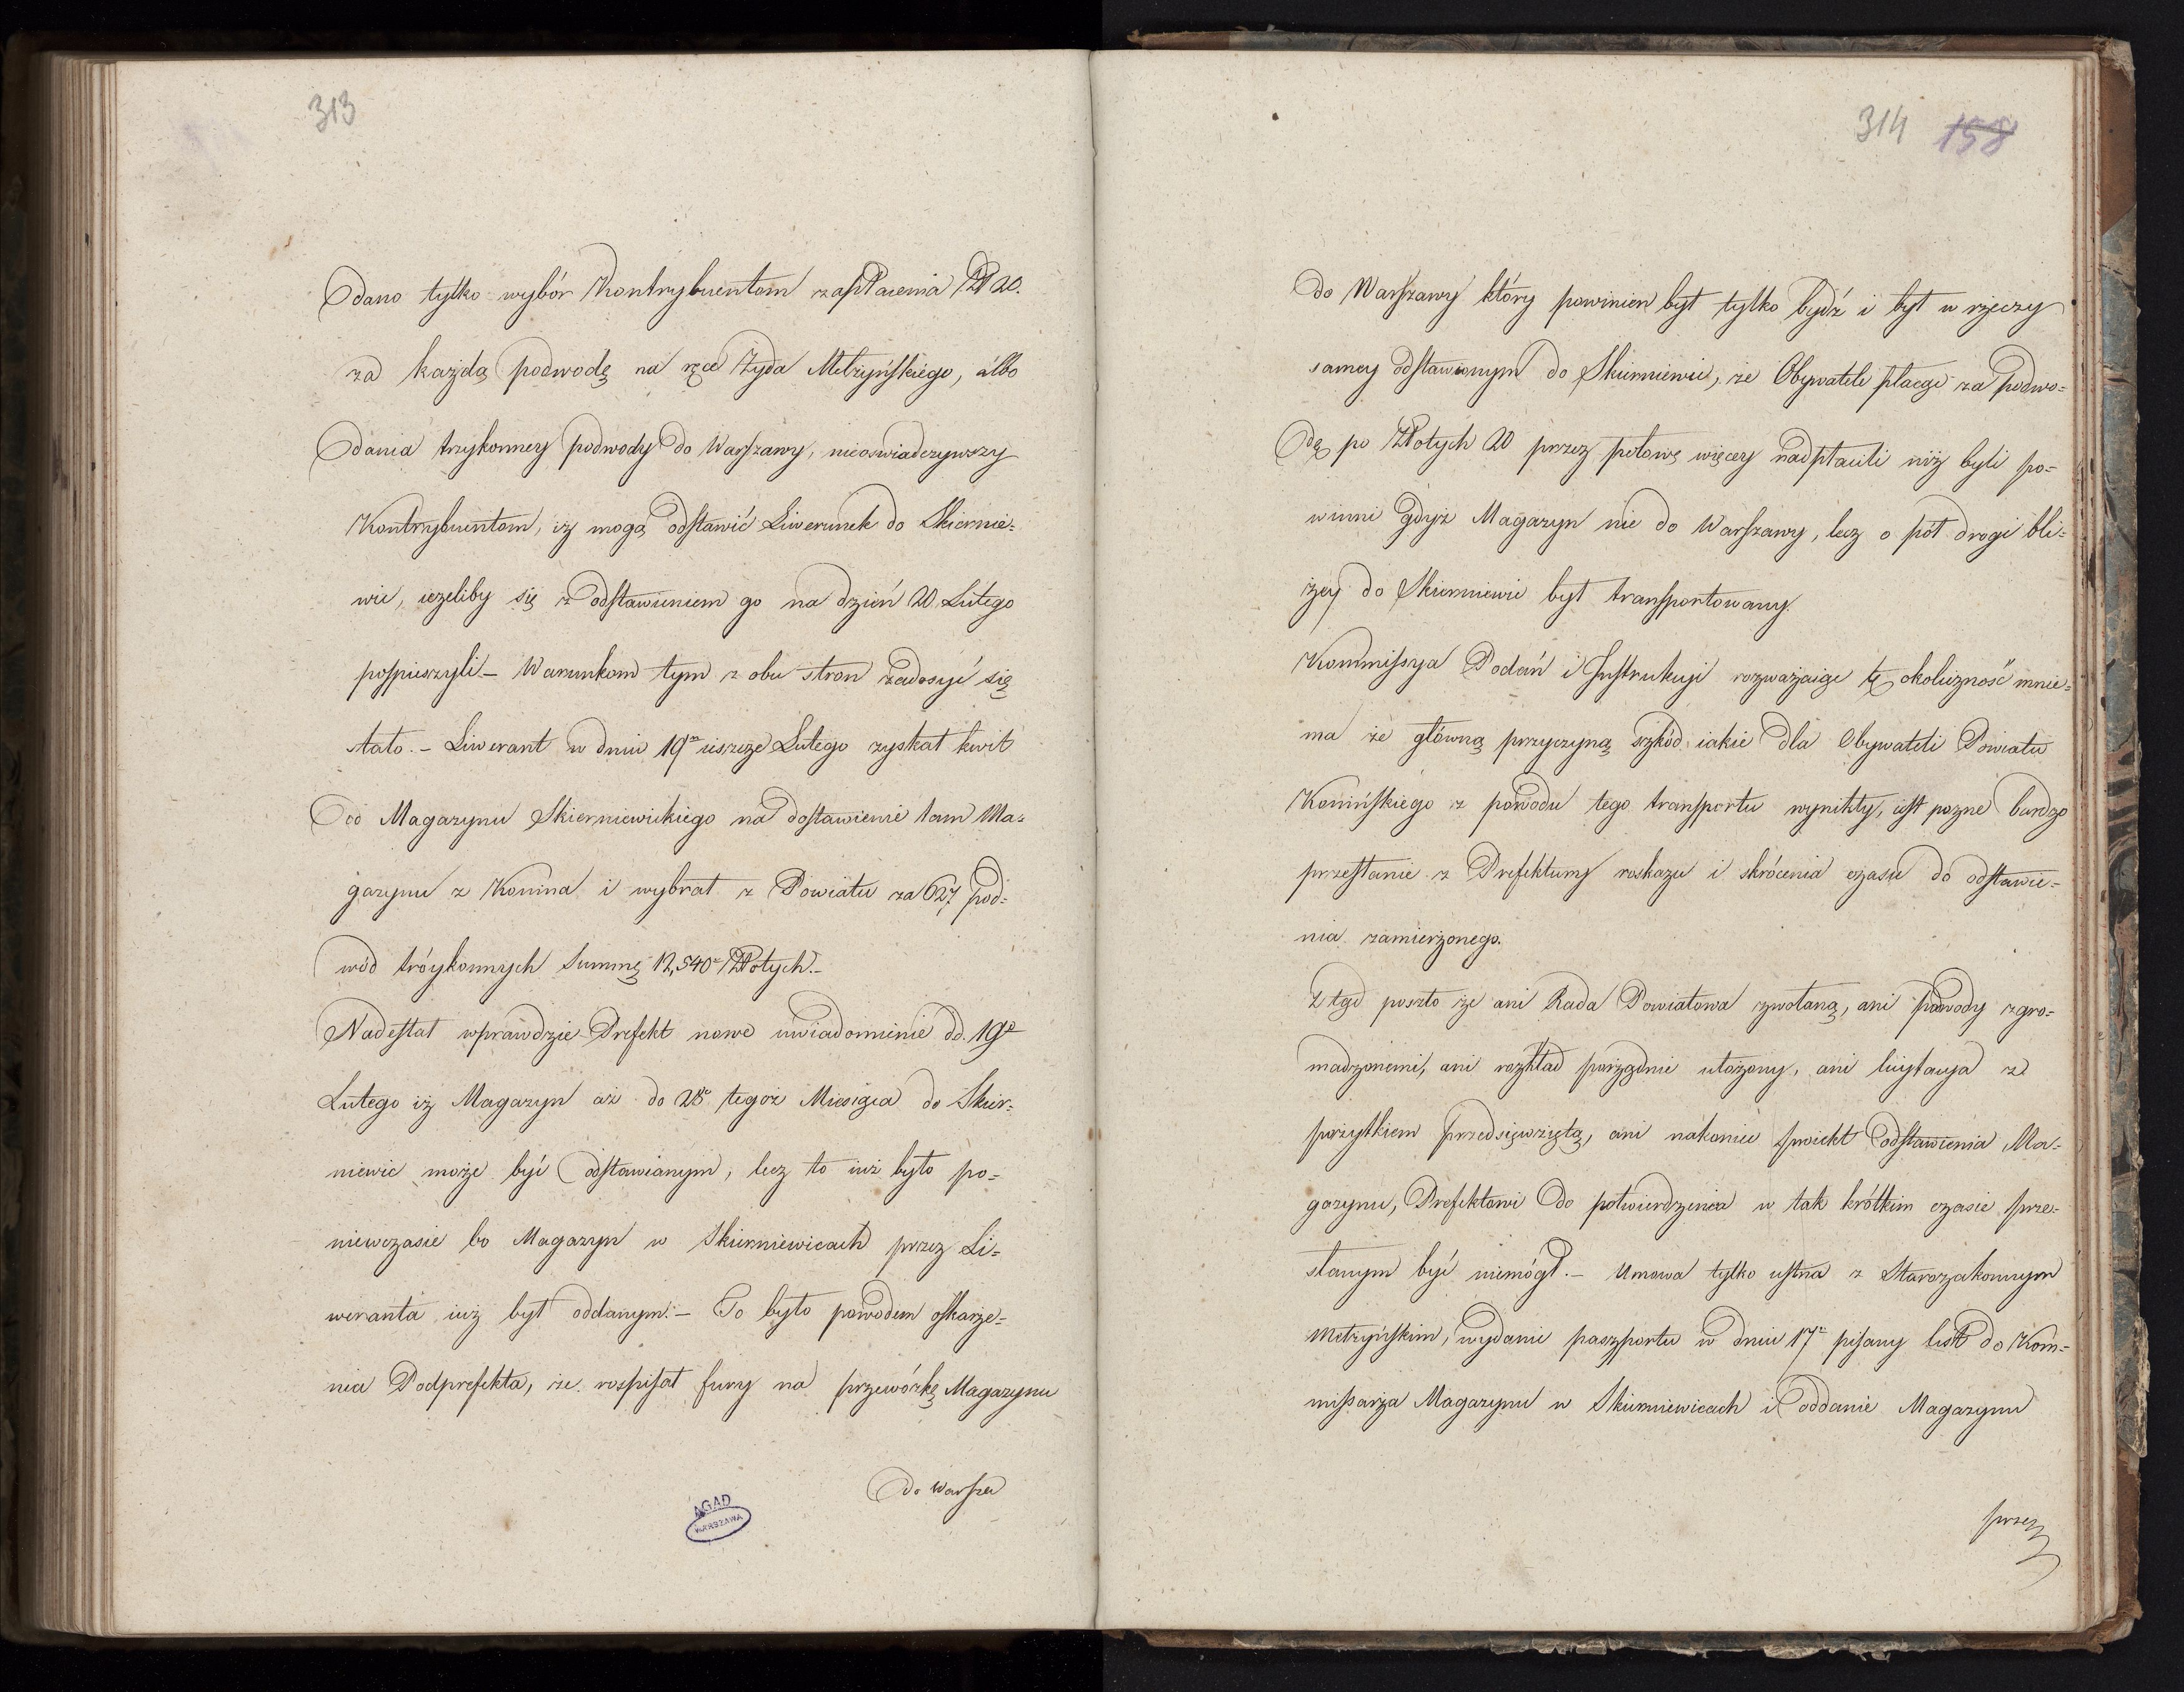 313
Dano tylko wybór Kontrybuentom zapłacenia Zł 20.
za każdą podwodę na ręce Żyda Metrzyńskiego, albo
Dania trzykonney podwody do Warszawy, nieoswiadczywszy
Kontrybuentom, iż mogą odstawić Liwerunek do Skiernie=
wic, ieżeliby się z odstawieniem go na dzień 20 Lutego
pospieszyli – Warunkom tym z obu stron zadosyć się
stało. – Liwerant w dniu 19 ieszcze Lutego zyskał kwit
Od Magazynu Skierniewickiego na dostawienie tam Ma=
gazynu z Konina i wybrał z Powiatu za 627 pod=
wód tróykonnych Summę 12,540 Złotych. –
Nadesłał wprawdzie Prefekt nowe uwiadomienie dd. 19º
Lutego iż Magazyn aż do 28º tegoż Miesiąca do Skier=
niewic może być odstawianym, lecz to iuż było po=
niewczasie bo Magazyn w Skierniewicach przez Li=
weranta iuż był oddanym. – To było powodem oskarże=
nia Podprefekta, że rospisał fury na przewózkę Magazynu
do Warsza
AGAD
WARSZAWA
314 158
do Warszawy który powinien był tylko bydź i był w rzeczy
samey odstawionym do Skierniewic, że Obywatele płacąc za podwo=
dę po Złotych 20 przez połowę więcey nadpłacili niż byli po=
winni gdyż Magazyn nie do Warszawy, lecz o pół drogi bli=
żey do Skierniewic był transportowany.
Kommissya Podań i Instrukcyi rozważaiąc tę okoliczność mnie=
ma że główną przyczyną szkód iakie dla Obywateli Powiatu
Konińskiego z powodu tego transportu wynikły, iest pozne bardzo
przesłanie z Prefektury roskazu i skrócenia czasu do odstawie=
nia zamierzonego.
Z tąd poszło że ani Rada Powiatowa zwołaną, ani podwody zgro=
madzonemi, ani rozkład porządnie ułożony, ani licytacya ze
skutkiem przedsięwziętą, ani nakoniec proiekt odstawienia Ma=
gazynu, Prefektowi do potwierdzenia w tak krótkim czasie prze=
słanym być niemógł. – Umowa tylko ustna z Starozakonnym
Metrzyńskim, wydanie paszportu w dniu 17 pisany list do Kom=
missarza Magazynu w Skierniewicach i oddanie Magazynu
przez